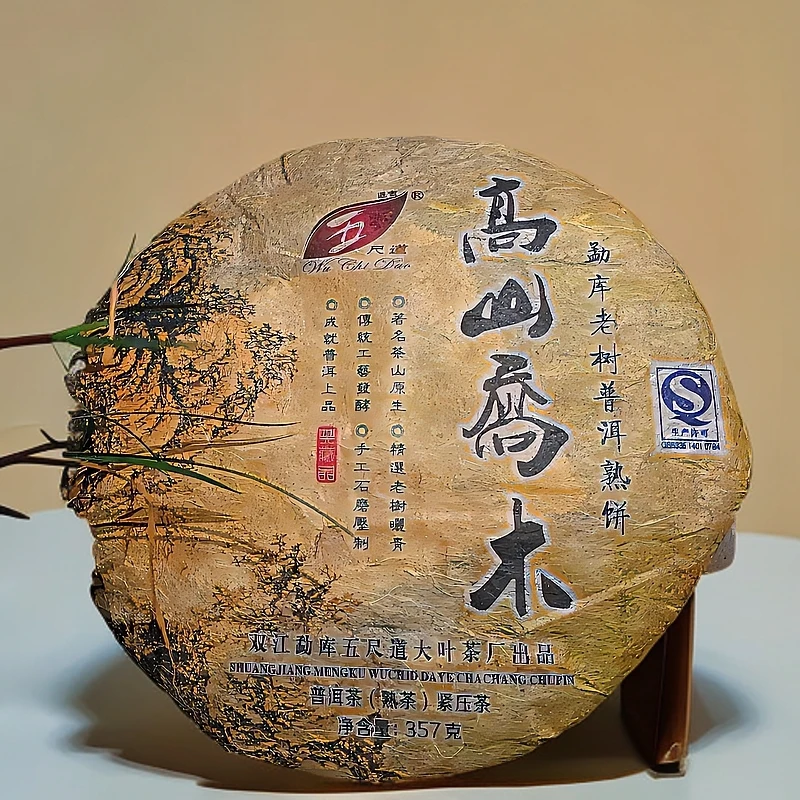 五
尺道
®
Wu Chi Dao
高山喬木
勐库老树普洱熟饼
著名茶山原生
精選老樹曬青
傳統工藝發酵
手工石磨壓制
成就普洱上品
典藏品
QS
生产许可
双江勐库五尺道大叶茶厂出品
SHUANGJIANG MENGKU WUCHIDDAYE CHACHANG CHUPIN
普洱茶（熟茶）紧压茶
净含量:357克